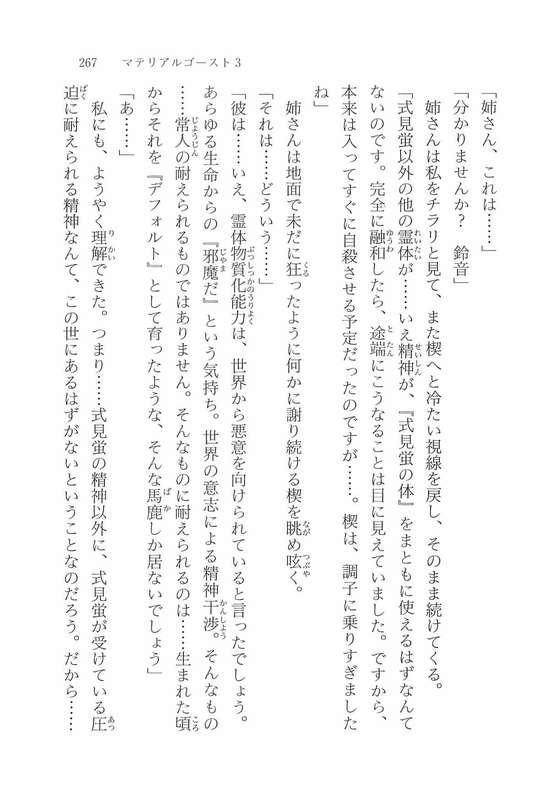 267　マテリアルゴースト3
「姉さん、これは……」
「分かりませんか？　鈴音」
　姉さんは私をチラリと見て、また楔へと冷たい視線を戻し、そのまま続けてくる。
「式見蛍以外の他の霊体が……いえ精神が、『式見蛍の体』をまともに使えるはずなんて
ないのです。完全に融和したら、途端にこうなることは目に見えていました。ですから、
本来は入ってすぐに自殺させる予定だったのですが……。楔は、調子に乗りすぎました
ね」
　姉さんは地面で未だに狂ったように何かに謝り続ける楔を眺め呟く。
「それは……どういう……」
「彼は……いえ、霊体物質化能力は、世界から悪意を向けられていると言ったでしょう。
あらゆる生命からの『邪魔だ』という気持ち。世界の意志による精神干渉。そんなもの
……常人の耐えられるものではありません。そんなものに耐えられるのは……生まれた頃
からそれを『デフォルト』として育ったような、そんな馬鹿しか居ないでしょう」
「あ……」
　私にも、ようやく理解できた。つまり……式見蛍の精神以外に、式見蛍が受けている圧
迫に耐えられる精神なんて、この世にあるはずがないということなのだろう。だから……